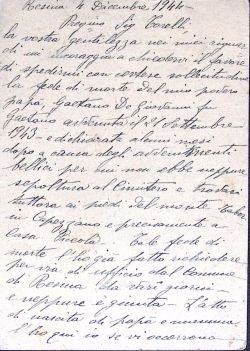 Resina 4 Dicembre 1944-
Pregmo Sig Torelli,
la vostra gentilezza nei miei riguar
di mi incoraggia a chiedervi il favore
di spedirmi con cortese sollecitudine
la fede di morte del mio povero
papà, Gaetano De Giovanni fu
Gaetano avvenuta il 21 Settembre
1943 - e dichiarata alcuni mesi
dopo a causa degli avvenimenti
bellici per cui non ebbe neppure
sepoltura al Cimitero e trovasi
tuttora ai piedi del monte
in Capezzano e precisamente a
casa Tale fede di
morte l'ho già fatta richiedere
per via di ufficio dal Comune
di Resina da giorni
e neppure è giunta - L'atto
di nascita di papà e mamma
l'ho qui io se vi occorrono